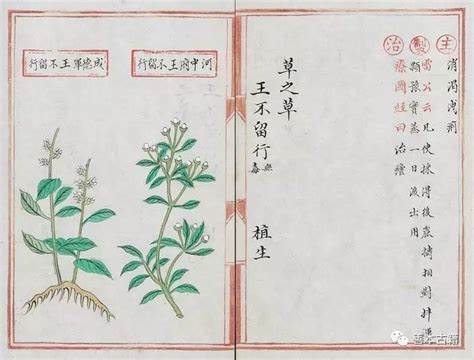 主
消渴洩痢
製
雷公云凡使採得後
蒸一日
出用
治
療圖經曰治
草之草
王不留行 無毒 植生
河中府王不留行
成德軍王不留行
善本古籍